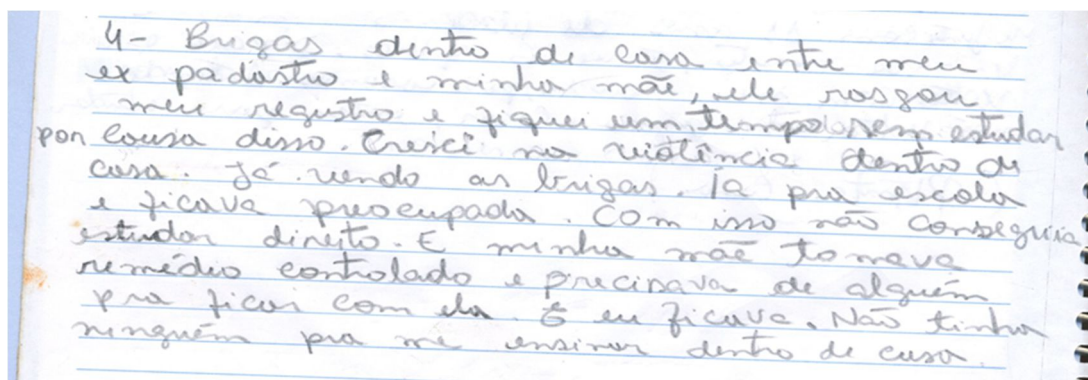 4- Brigas dentro de casa entre meu
ex padastro e minha mãe, ele rasgou
meu registro e fiquei um tempo sem estudar
por causa disso. Cresci na violência dentro de
casa. Já vendo as brigas. Ia pra escola
e ficava preocupada. Com isso não conseguia
estudar direito. E minha mãe tomava
remédio controlado e precinava de alguém
pra ficar com ela. E eu ficava. Não tinha
ninguém pra me ensinar dentro de casa.